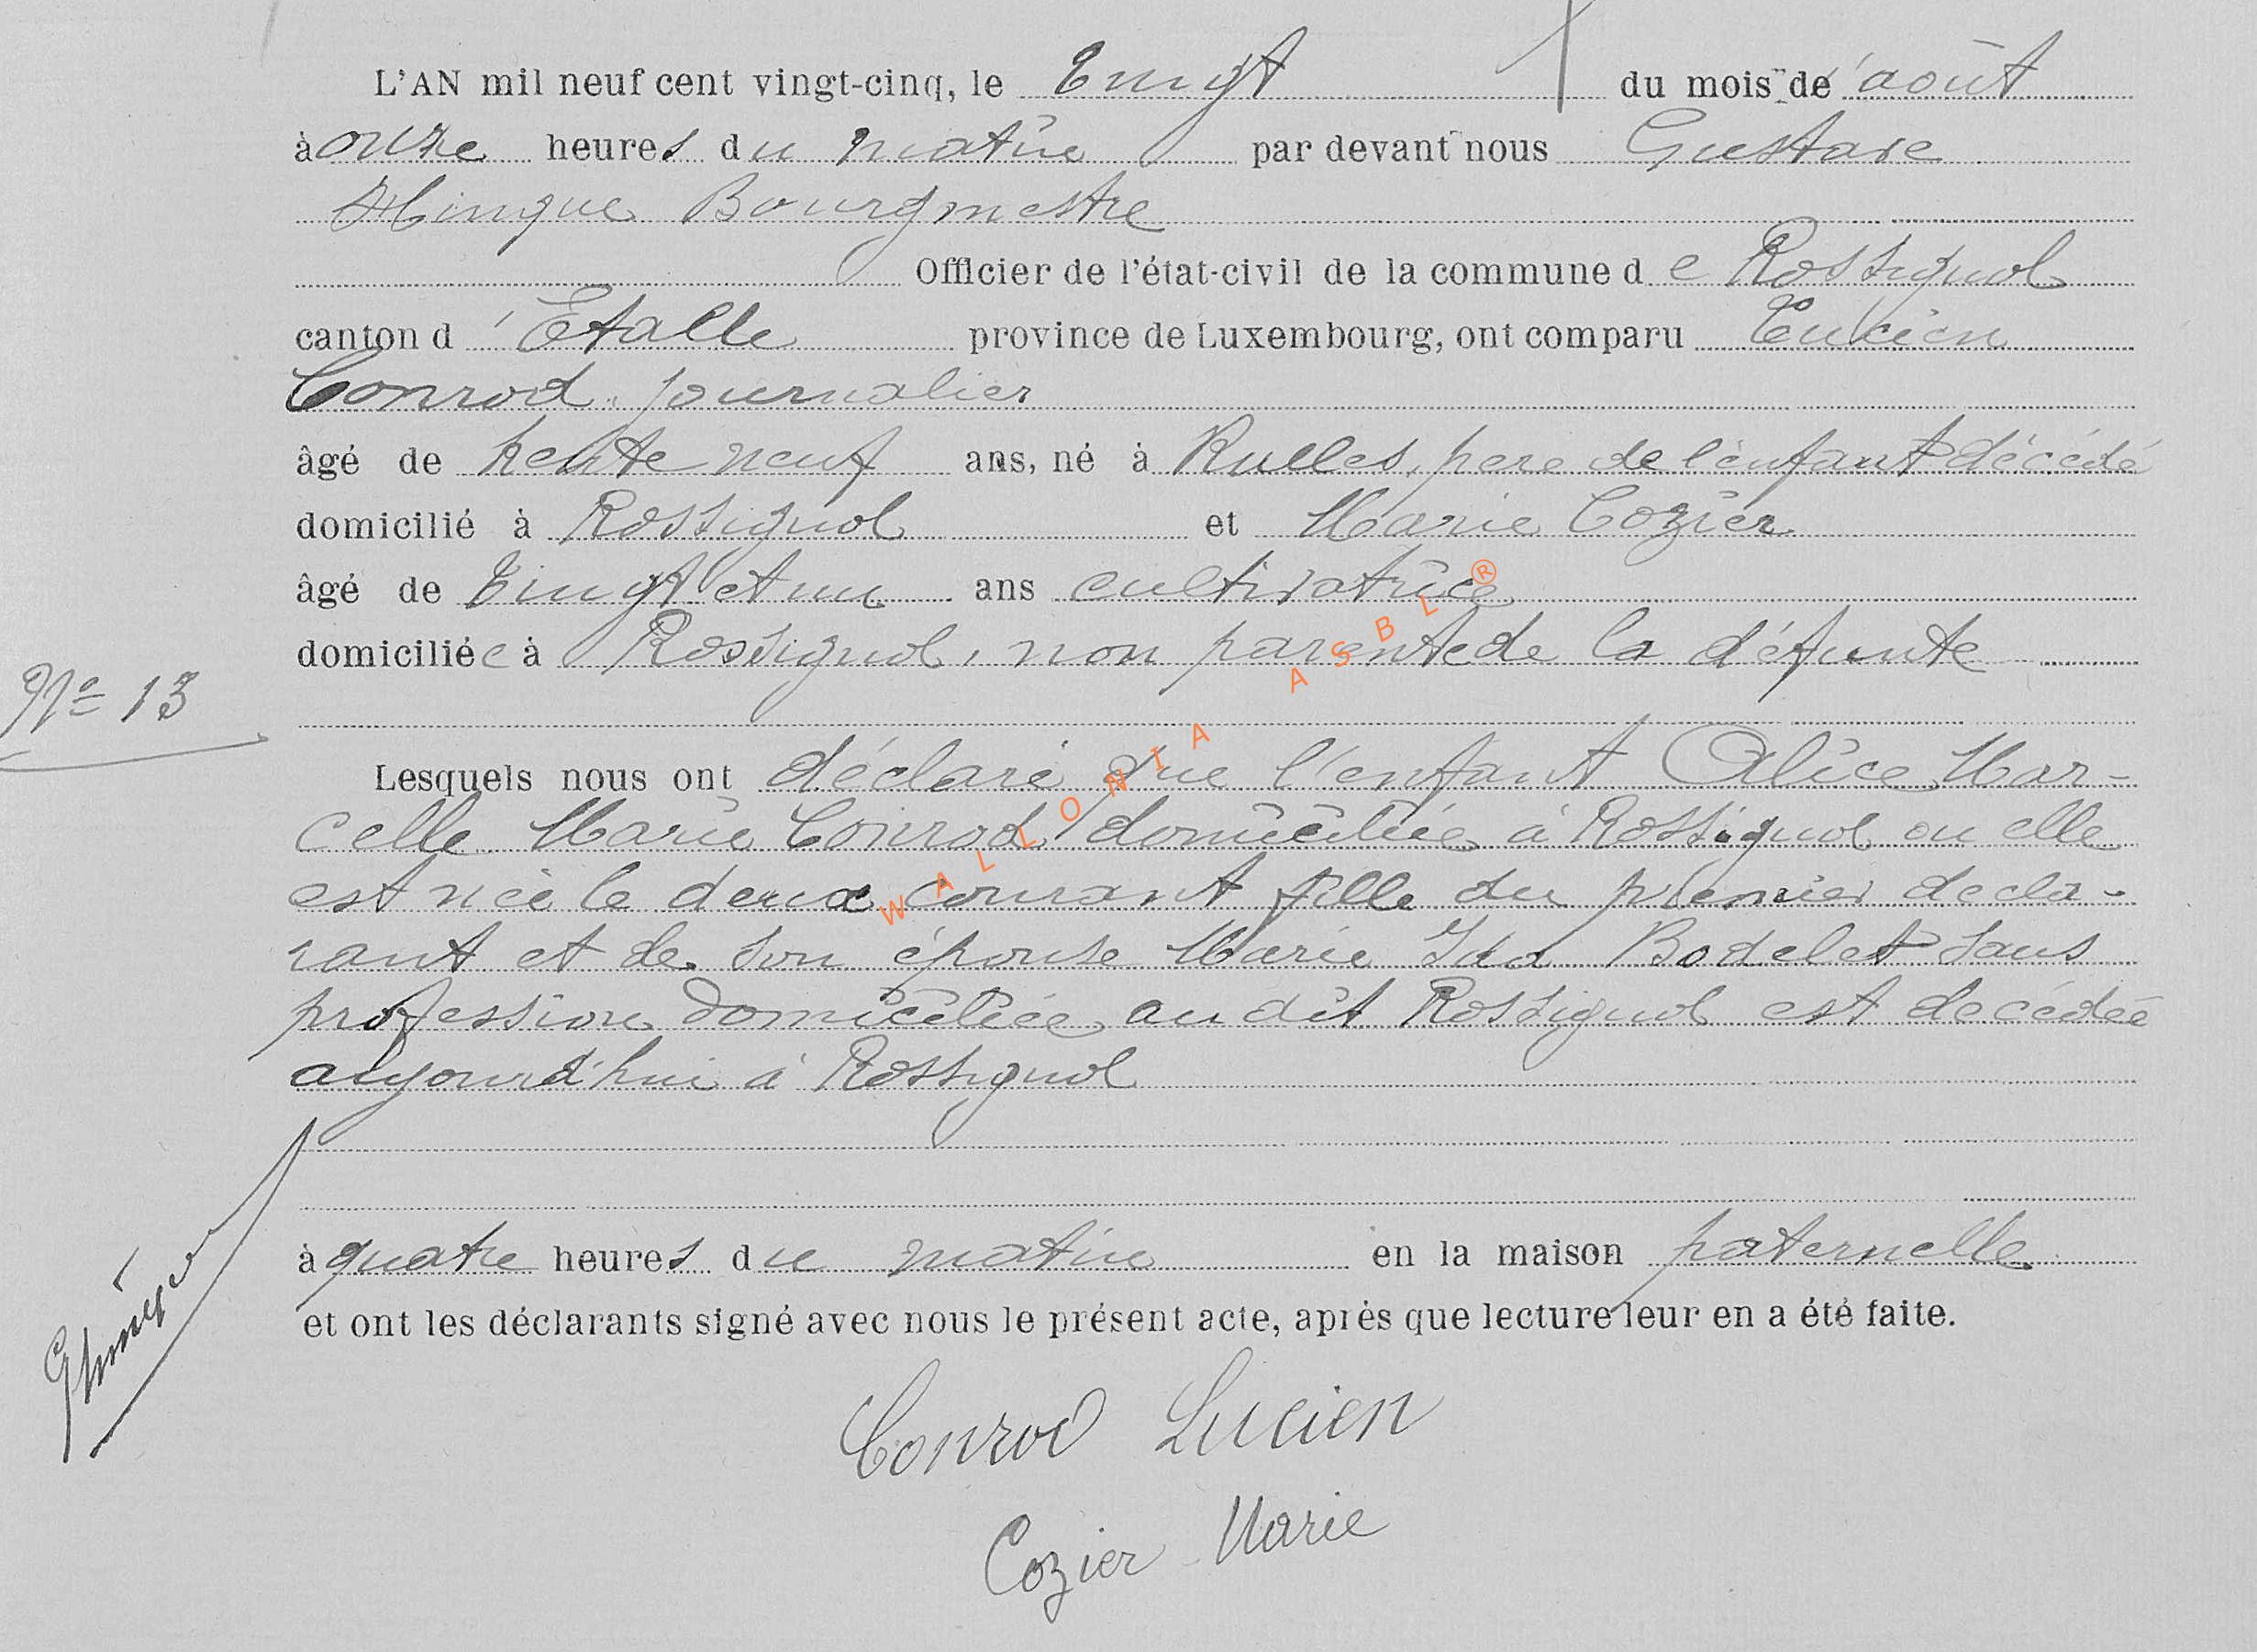 L'AN mil neuf cent vingt-cinq, le Vingt du mois de août
à onze heures du matin par devant nous Gustave
Hinque Bourgmestre
Officier de l'état-civil de la commune de Rossignol
canton d'Etalle province de Luxembourg, ont comparu Lucien
Conrod journalier
âgé de trente neuf ans, né à Rulles, père de l'enfant décédé
domicilié à Rossignol et Marie Cozier
âgé de Vingt et un ans cultivatrice
domiciliée à Rossignol, non parente de la défunte
Nº 13
Lesquels nous ont déclaré que l'enfant Alice Mar-
celle Marie Conrod domiciliée à Rossignol ou elle
est née le deux courant fille du premier decla-
rant et de son épouse Marie Ida Bodelet sans
profession domiciliée au dit Rossignol est decédée
aujourd'hui à Rossignol
à quatre heures du matin en la maison paternelle
et ont les déclarants signé avec nous le présent acte, après que lecture leur en a été faite.
Conrod Lucien
Cozier Marie
WALLONIA ASBL ®